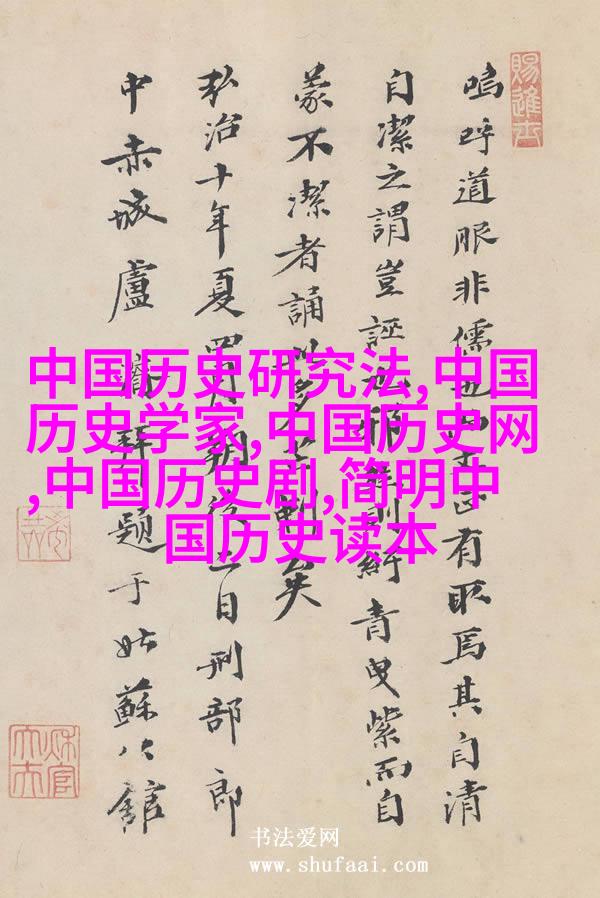 賜進士
嗚呼道服非儒也有取焉其自清
自潔之謂豈誣紆青曳紫而自
蒙不潔者誦矣
弘治十年夏四月朔後日刑部郎
中赤城盧題于姑蘇公館
中国历史研究法,中国
历史学家,中国历史网
,中国历史剧,简明中
国历史读本
书法爱网
www.shufaai.com